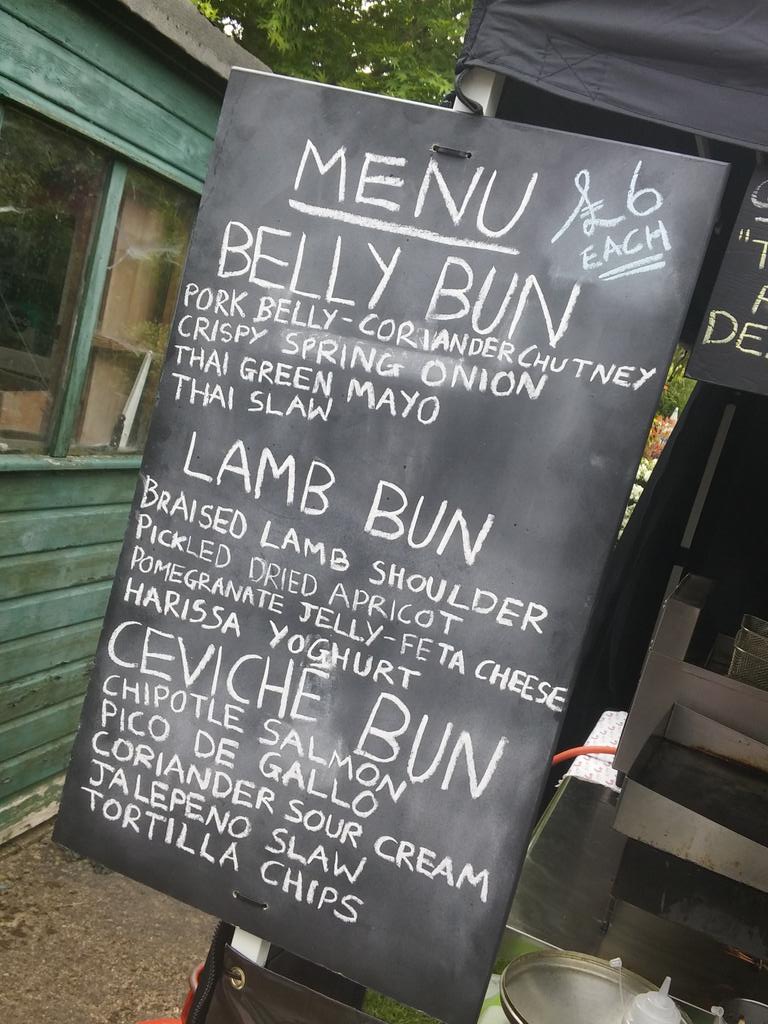 MENU
£6
EACH
BELLY BUN
PORK BELLY-CORIANDER CHUTNEY
CRISPY SPRING ONION
THAI GREEN MAYO
THAI SLAW
LAMB BUN
BRAISED LAMB SHOULDER
PICKLED DRIED APRICOT
POMEGRANATE JELLY-FETA CHEESE
HARISSA YOGHURT
CEVICHÉ BUN
CHIPOTLE SALMON
PICO DE GALLO
CORIANDER SOUR CREAM
JALEPENO SLAW
TORTILLA CHIPS